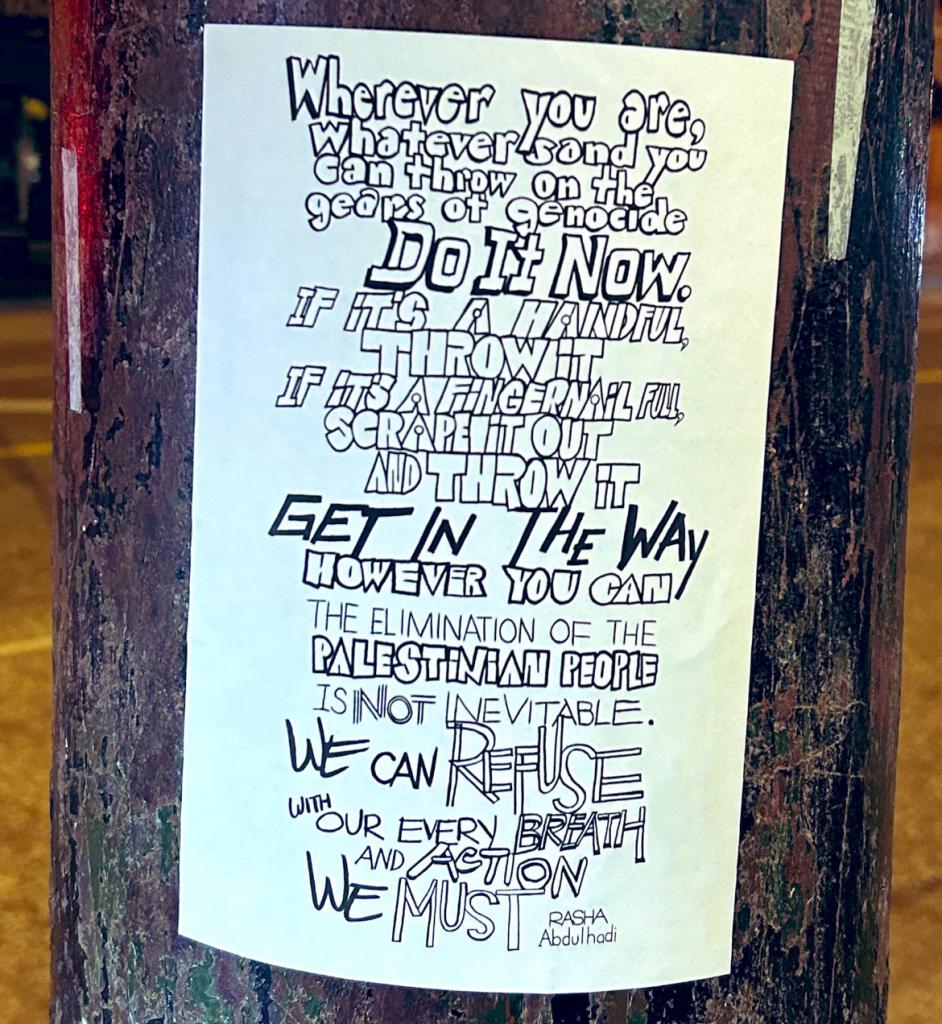 Wherever you are,
whatever sand you
can throw on the
gears of genocide
Do It Now.
IF IT'S A HANDFUL,
THROW IT
IF IT'S A FINGERNAIL FULL,
SCRAPE IT OUT
AND THROW IT
GET IN THE WAY
HOWEVER YOU CAN
THE ELIMINATION OF THE
PALESTINIAN PEOPLE
IS NOT INEVITABLE.
WE CAN REFUSE
WITH OUR EVERY BREATH
AND ACTION
WE MUST
RASHA
Abdulhadi